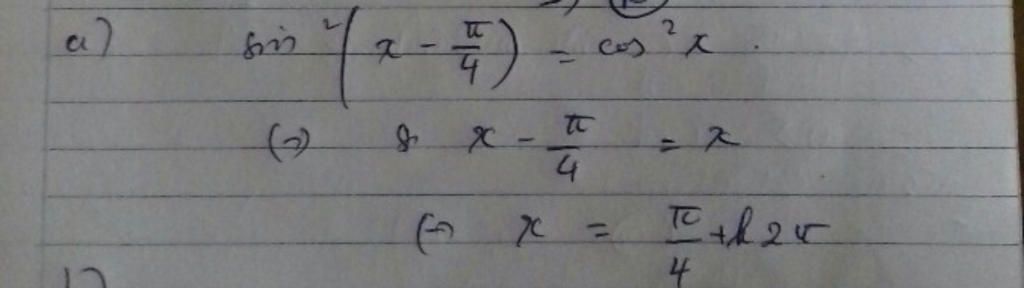 a) sin²(x - π/4) = cos²x.
(=) x - π/4 = x
(=) x = π/4 + k2π